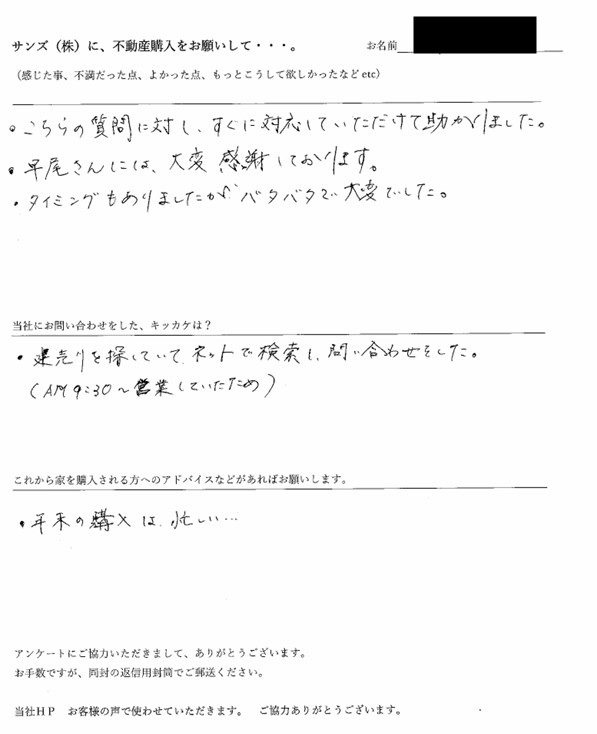 サンズ（株）に、不動産購入をお願いして・・・。 お名前
（感じた事、不満だった点、よかった点、もっとこうして欲しかったなど etc）
・こちらの質問に対し、すぐに対応していただけて助かりました。
・早尾さんには、大変感謝しております。
・タイミングもありましたがバタバタで大変でした。
当社にお問い合わせをした、キッカケは？
・建売りを探していて、ネットで検索し、問い合わせをした。
（AM9:30～営業していたため）
これから家を購入される方へのアドバイスなどがあればお願いします。
・年末の購入は、忙しい…
アンケートにご協力いただきまして、ありがとうございます。
お手数ですが、同封の返信用封筒でご郵送ください。
当社ＨＰ お客様の声で使わせていただきます。 ご協力ありがとうございます。